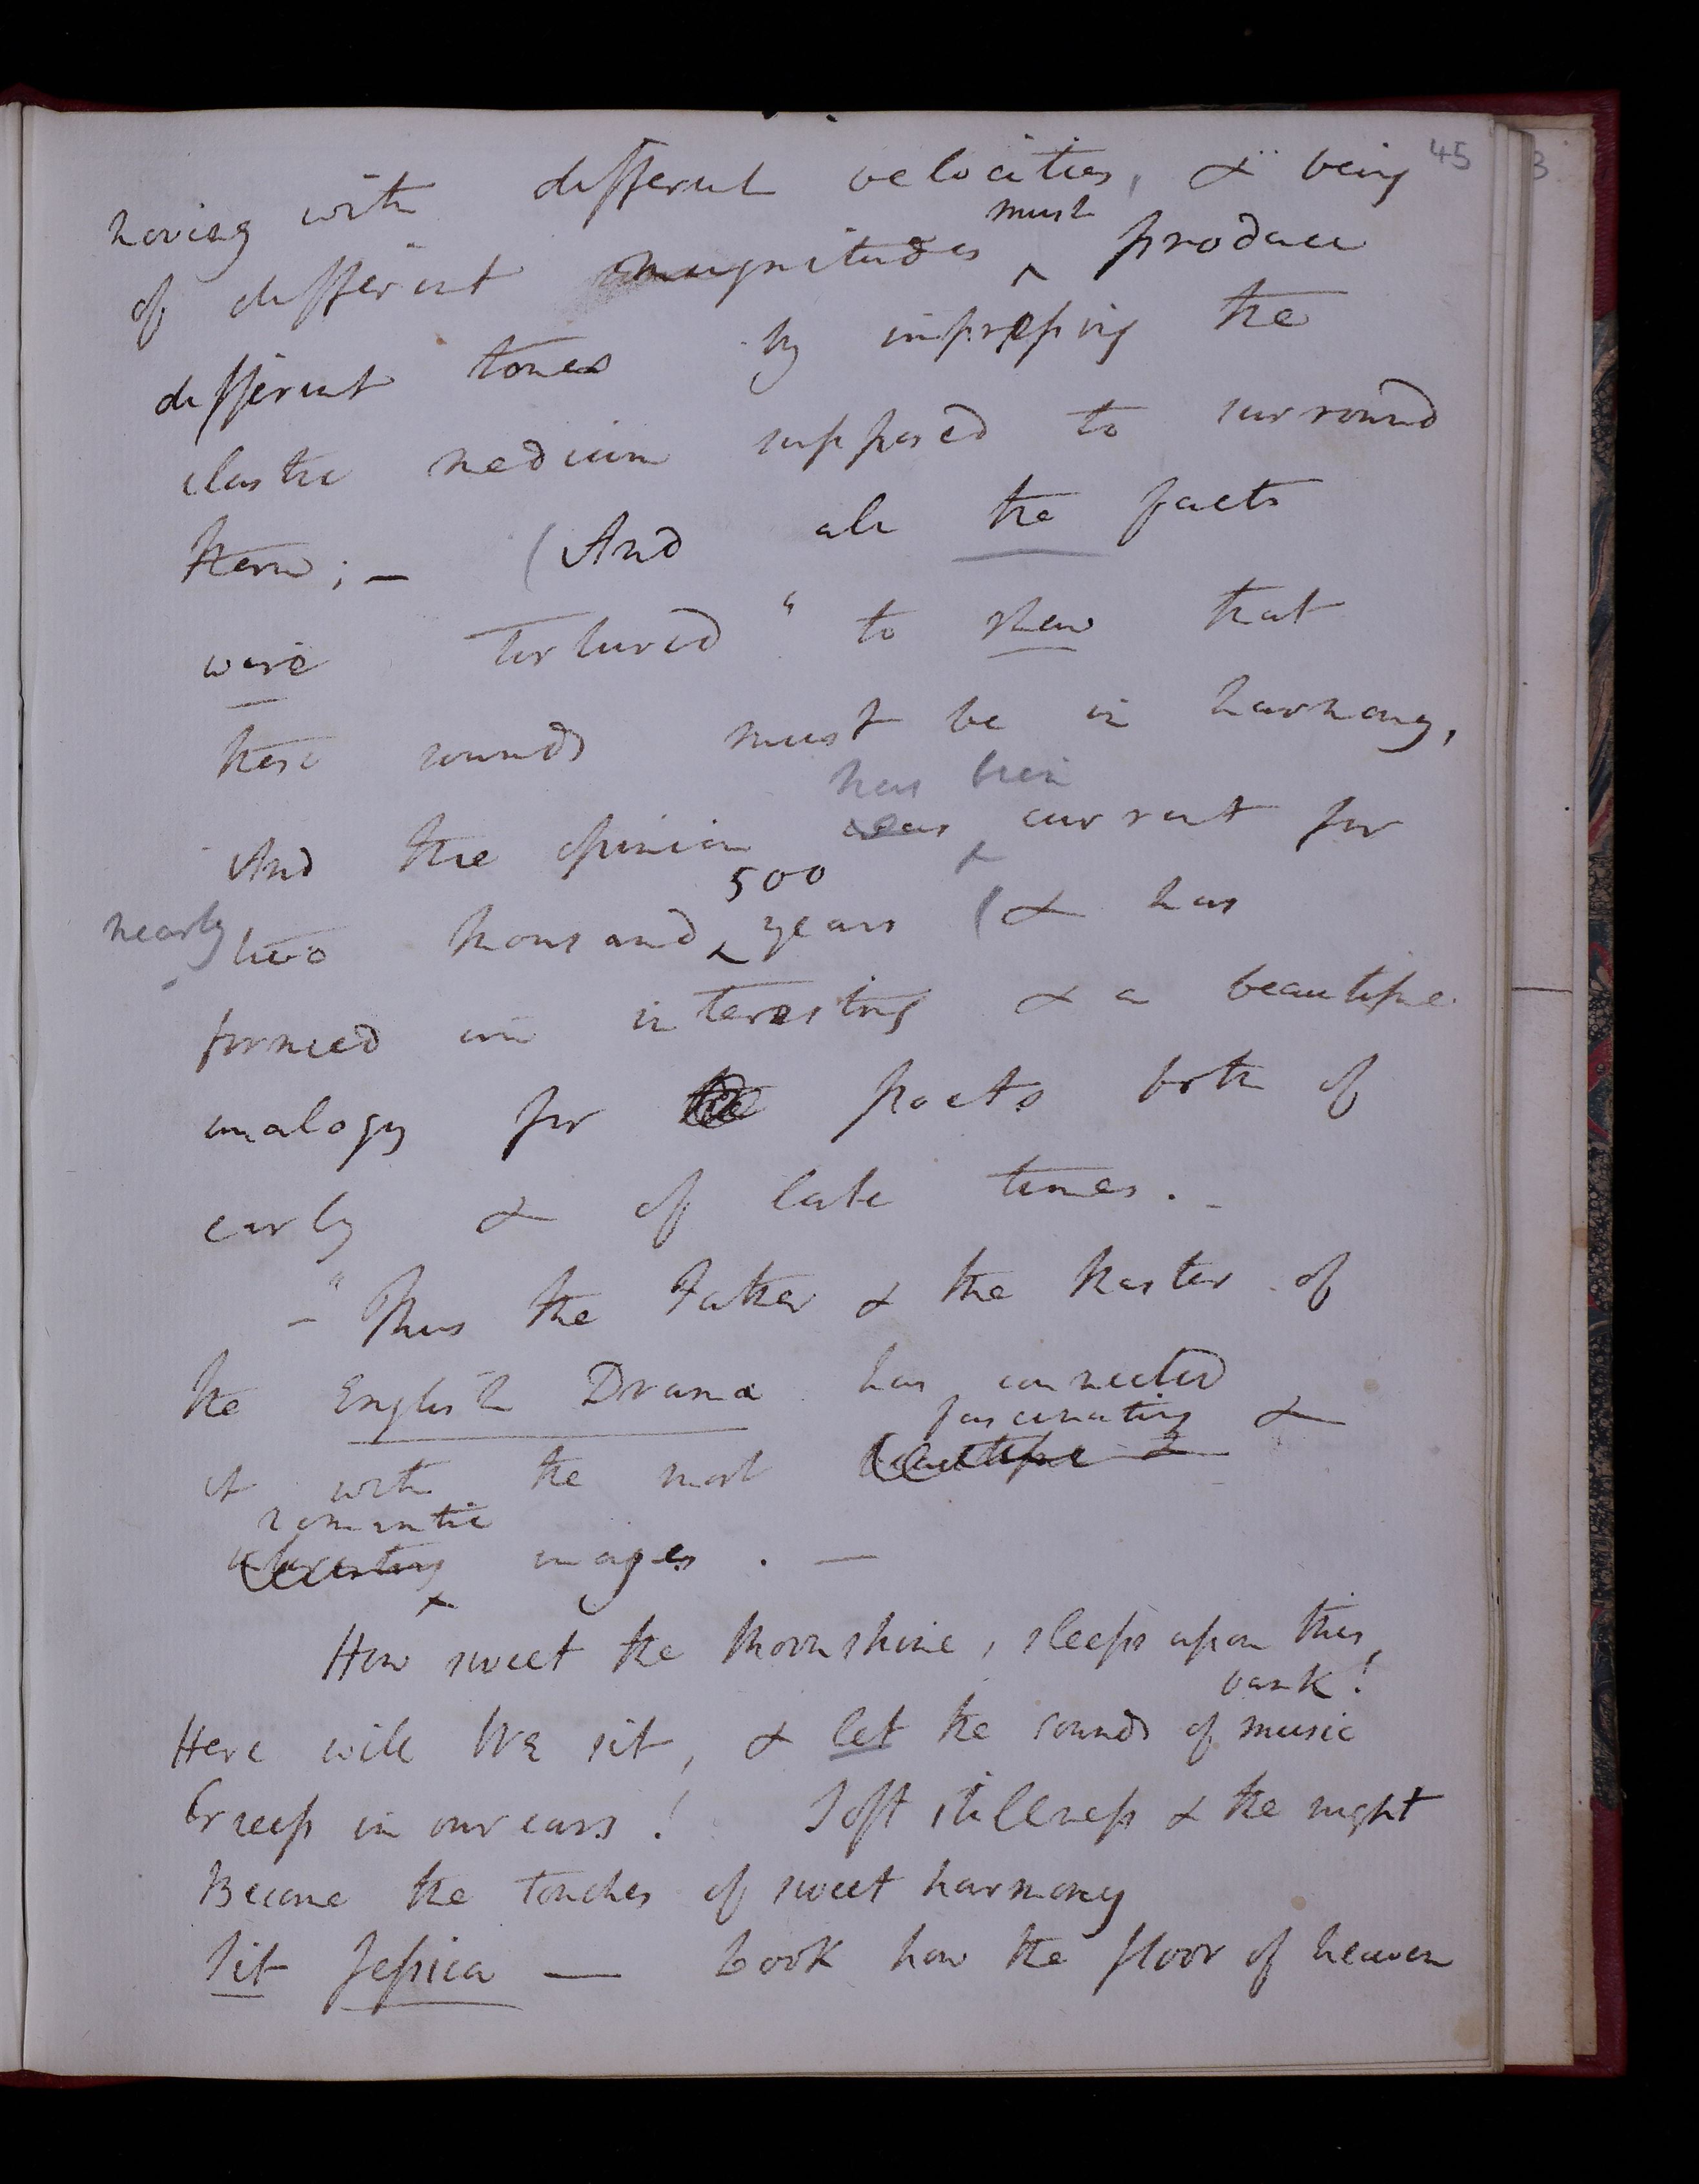 45
moving with different velocities, & being
of different magnitudes must produce
different tones by impressing the
elastic medium supposed to surround
them; — (And all the facts
were tortured" to shew that
these sounds must be in harmony,
has been
And the opinion was current for
500
nearly two thousand years (& has
formed an interesting & a beautiful
analogy for the poets both of
early & of late times. -
- "Thus the Father & the Master of
the English Drama has connected
fascinating &
it with the most beautiful &
romantic
interesting images. —
How sweet the Moonshine, sleeps upon this
bank!
Here will We sit, & let the sounds of music
Creep in our ears! Soft stillness & the night
Become the touches of sweet harmony
Sit Jessica — Look how the floor of heaven